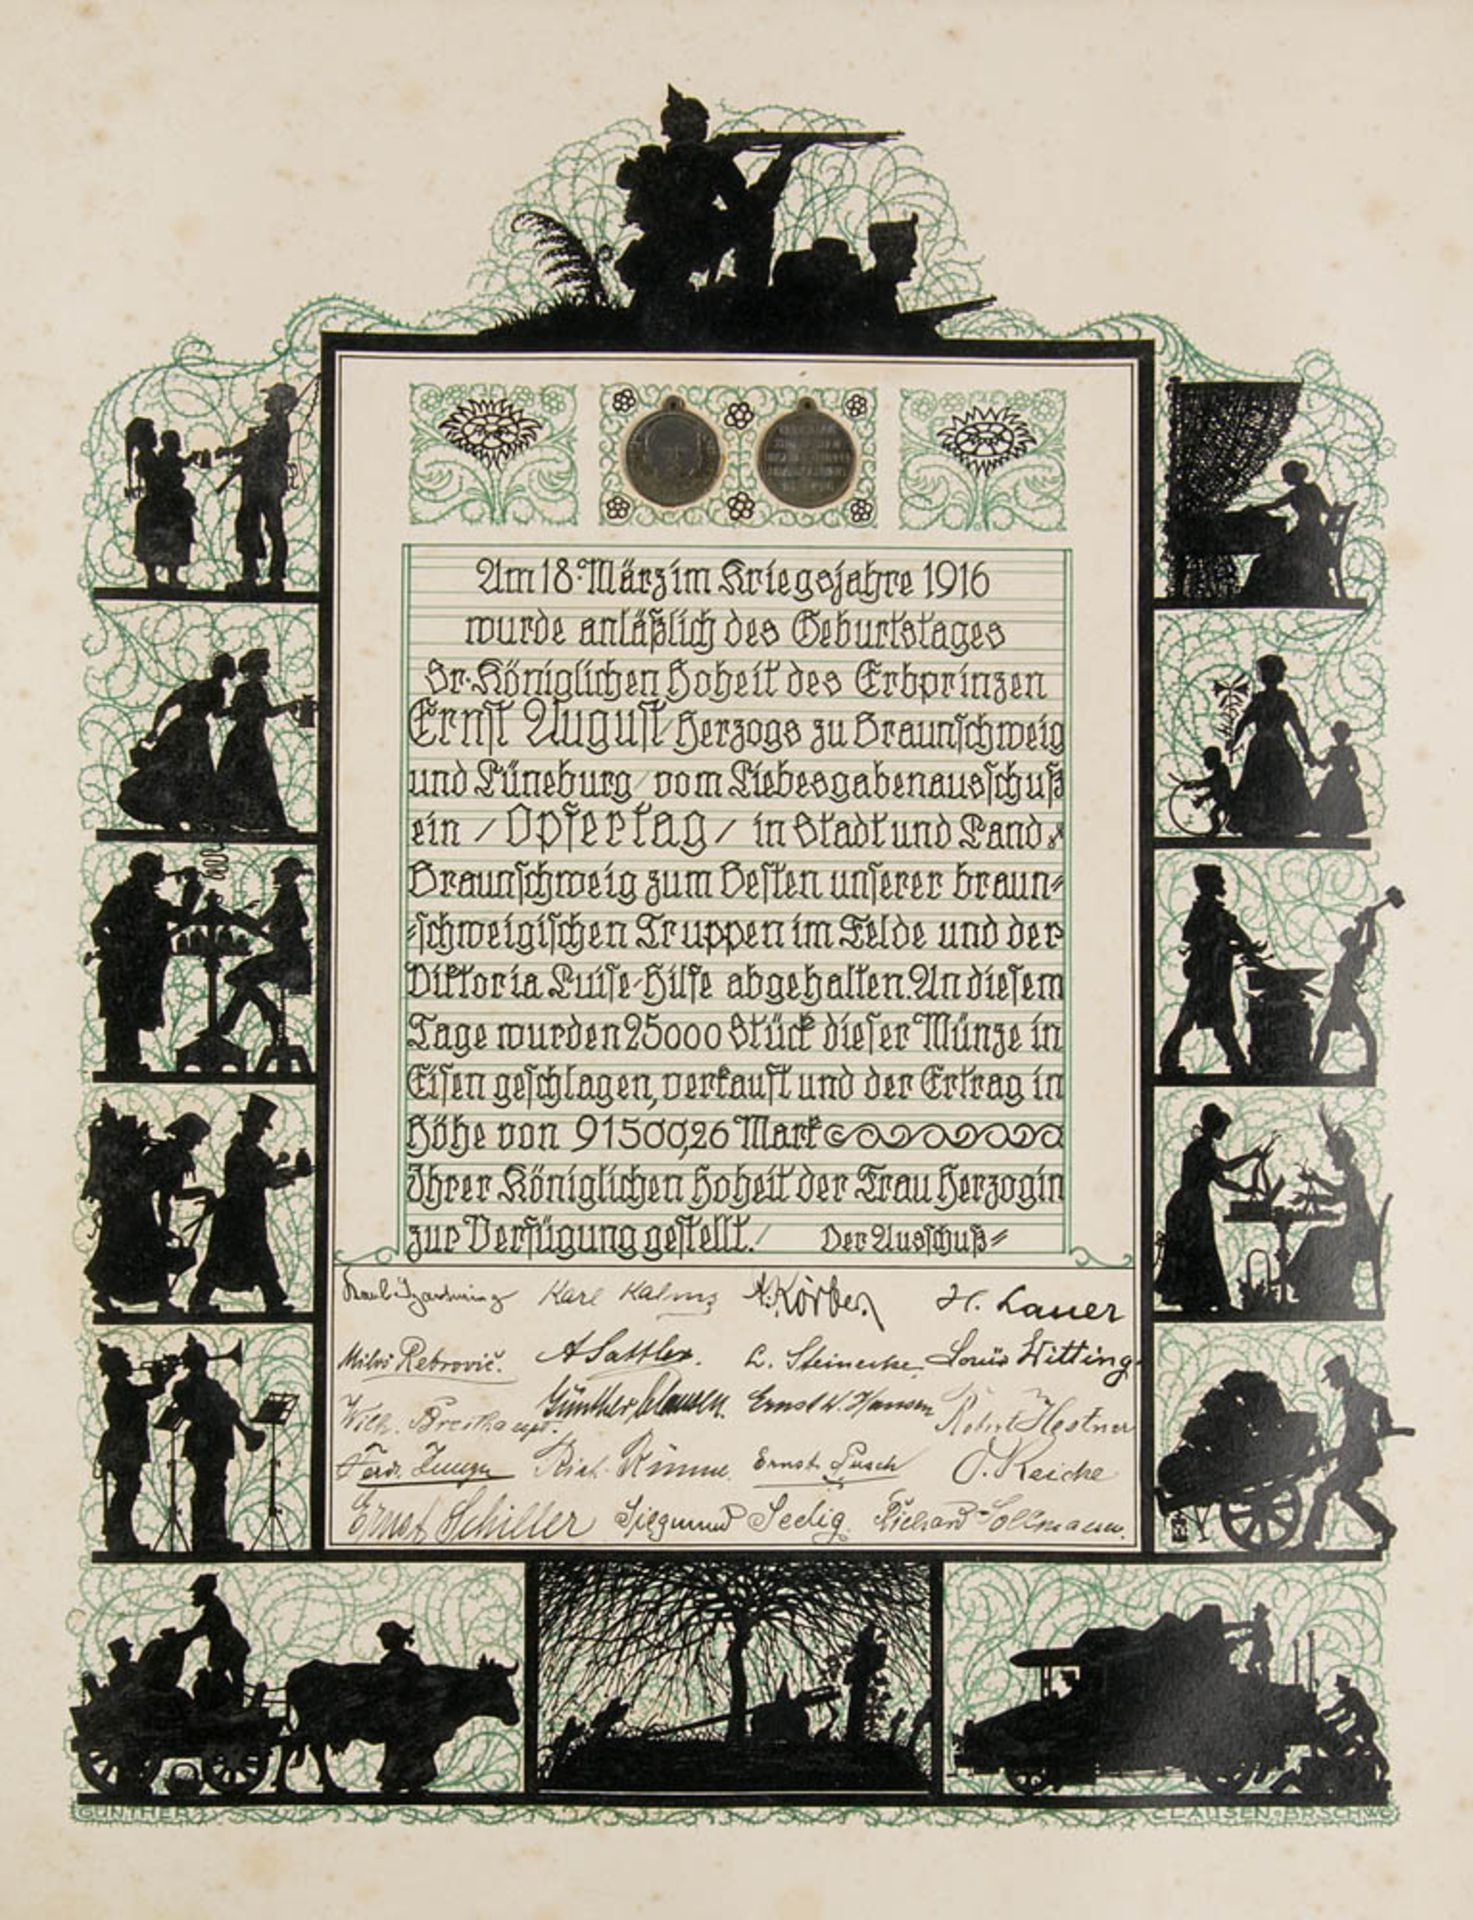 Am 18. März im Kriegsjahre 1916
wurde anläßlich des Geburtstages
Sr. Königlichen Hoheit des Erbprinzen
Ernst August / Herzogs zu Braunschweig
und Lüneburg / vom Liebesgabenausschuß
ein / Opfertag / in Stadt und Land
Braunschweig zum Besten unserer braun=
=schweigischen Truppen im Felde und der
Viktoria Luise-Hilfe abgehalten. An diesem
Tage wurden 25000 Stück dieser Münze in
Eisen geschlagen, verkauft und der Ertrag in
Höhe von 91500,26 Mark
Ihrer Königlichen Hoheit der Frau Herzogin
zur Verfügung gestellt. / Der Ausschuß=
Karl Kalms A. Körber H. Lauer
Milos Rebrovič. A Sattler. L. Steinecke. Louis Witting
Wilh. Breithaupt. Günther Clausen. Ernst W. Hansen Robert Hestner
Ferd. Rich. Rimme. Ernst Pusch O. Reiche
Ernst Schiller Siegmund Seelig. Richard Sollmann.
GÜNTHER CLAUSEN·BRSCHWG